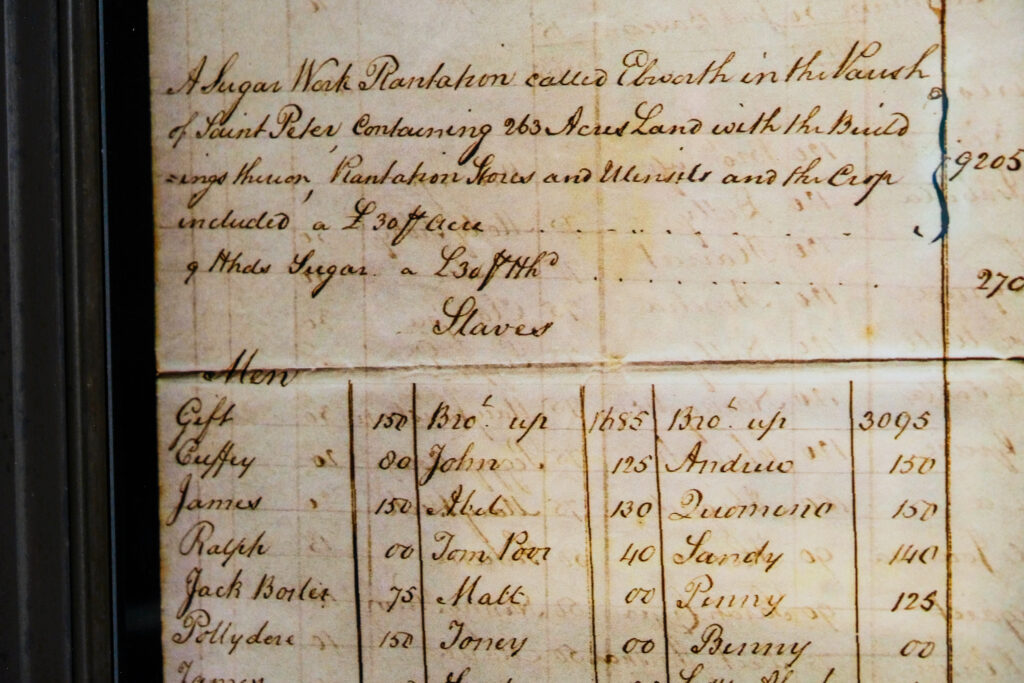 A Sugar Work Plantation called Ebworth in the Parish
of Saint Peter, Containing 263 Acres Land with the Build
=ings thereon, Plantation Stores and Utensils and the Crop 9205
included a £30 ⅌ Acre
9 Hhds Sugar a £30 ⅌ Hhd 270
Slaves
Men
Gift 150 Brot. up 1485 Brot. up 3095
Cuffey do 80 John 125 Andrew 150
James 150 Abel 130 Quomino 150
Ralph 00 Tom Poor 40 Sandy 140
Jack 75 Matt 00 Penny 125
Pollydore 150 Toney 00 Benny 00
James